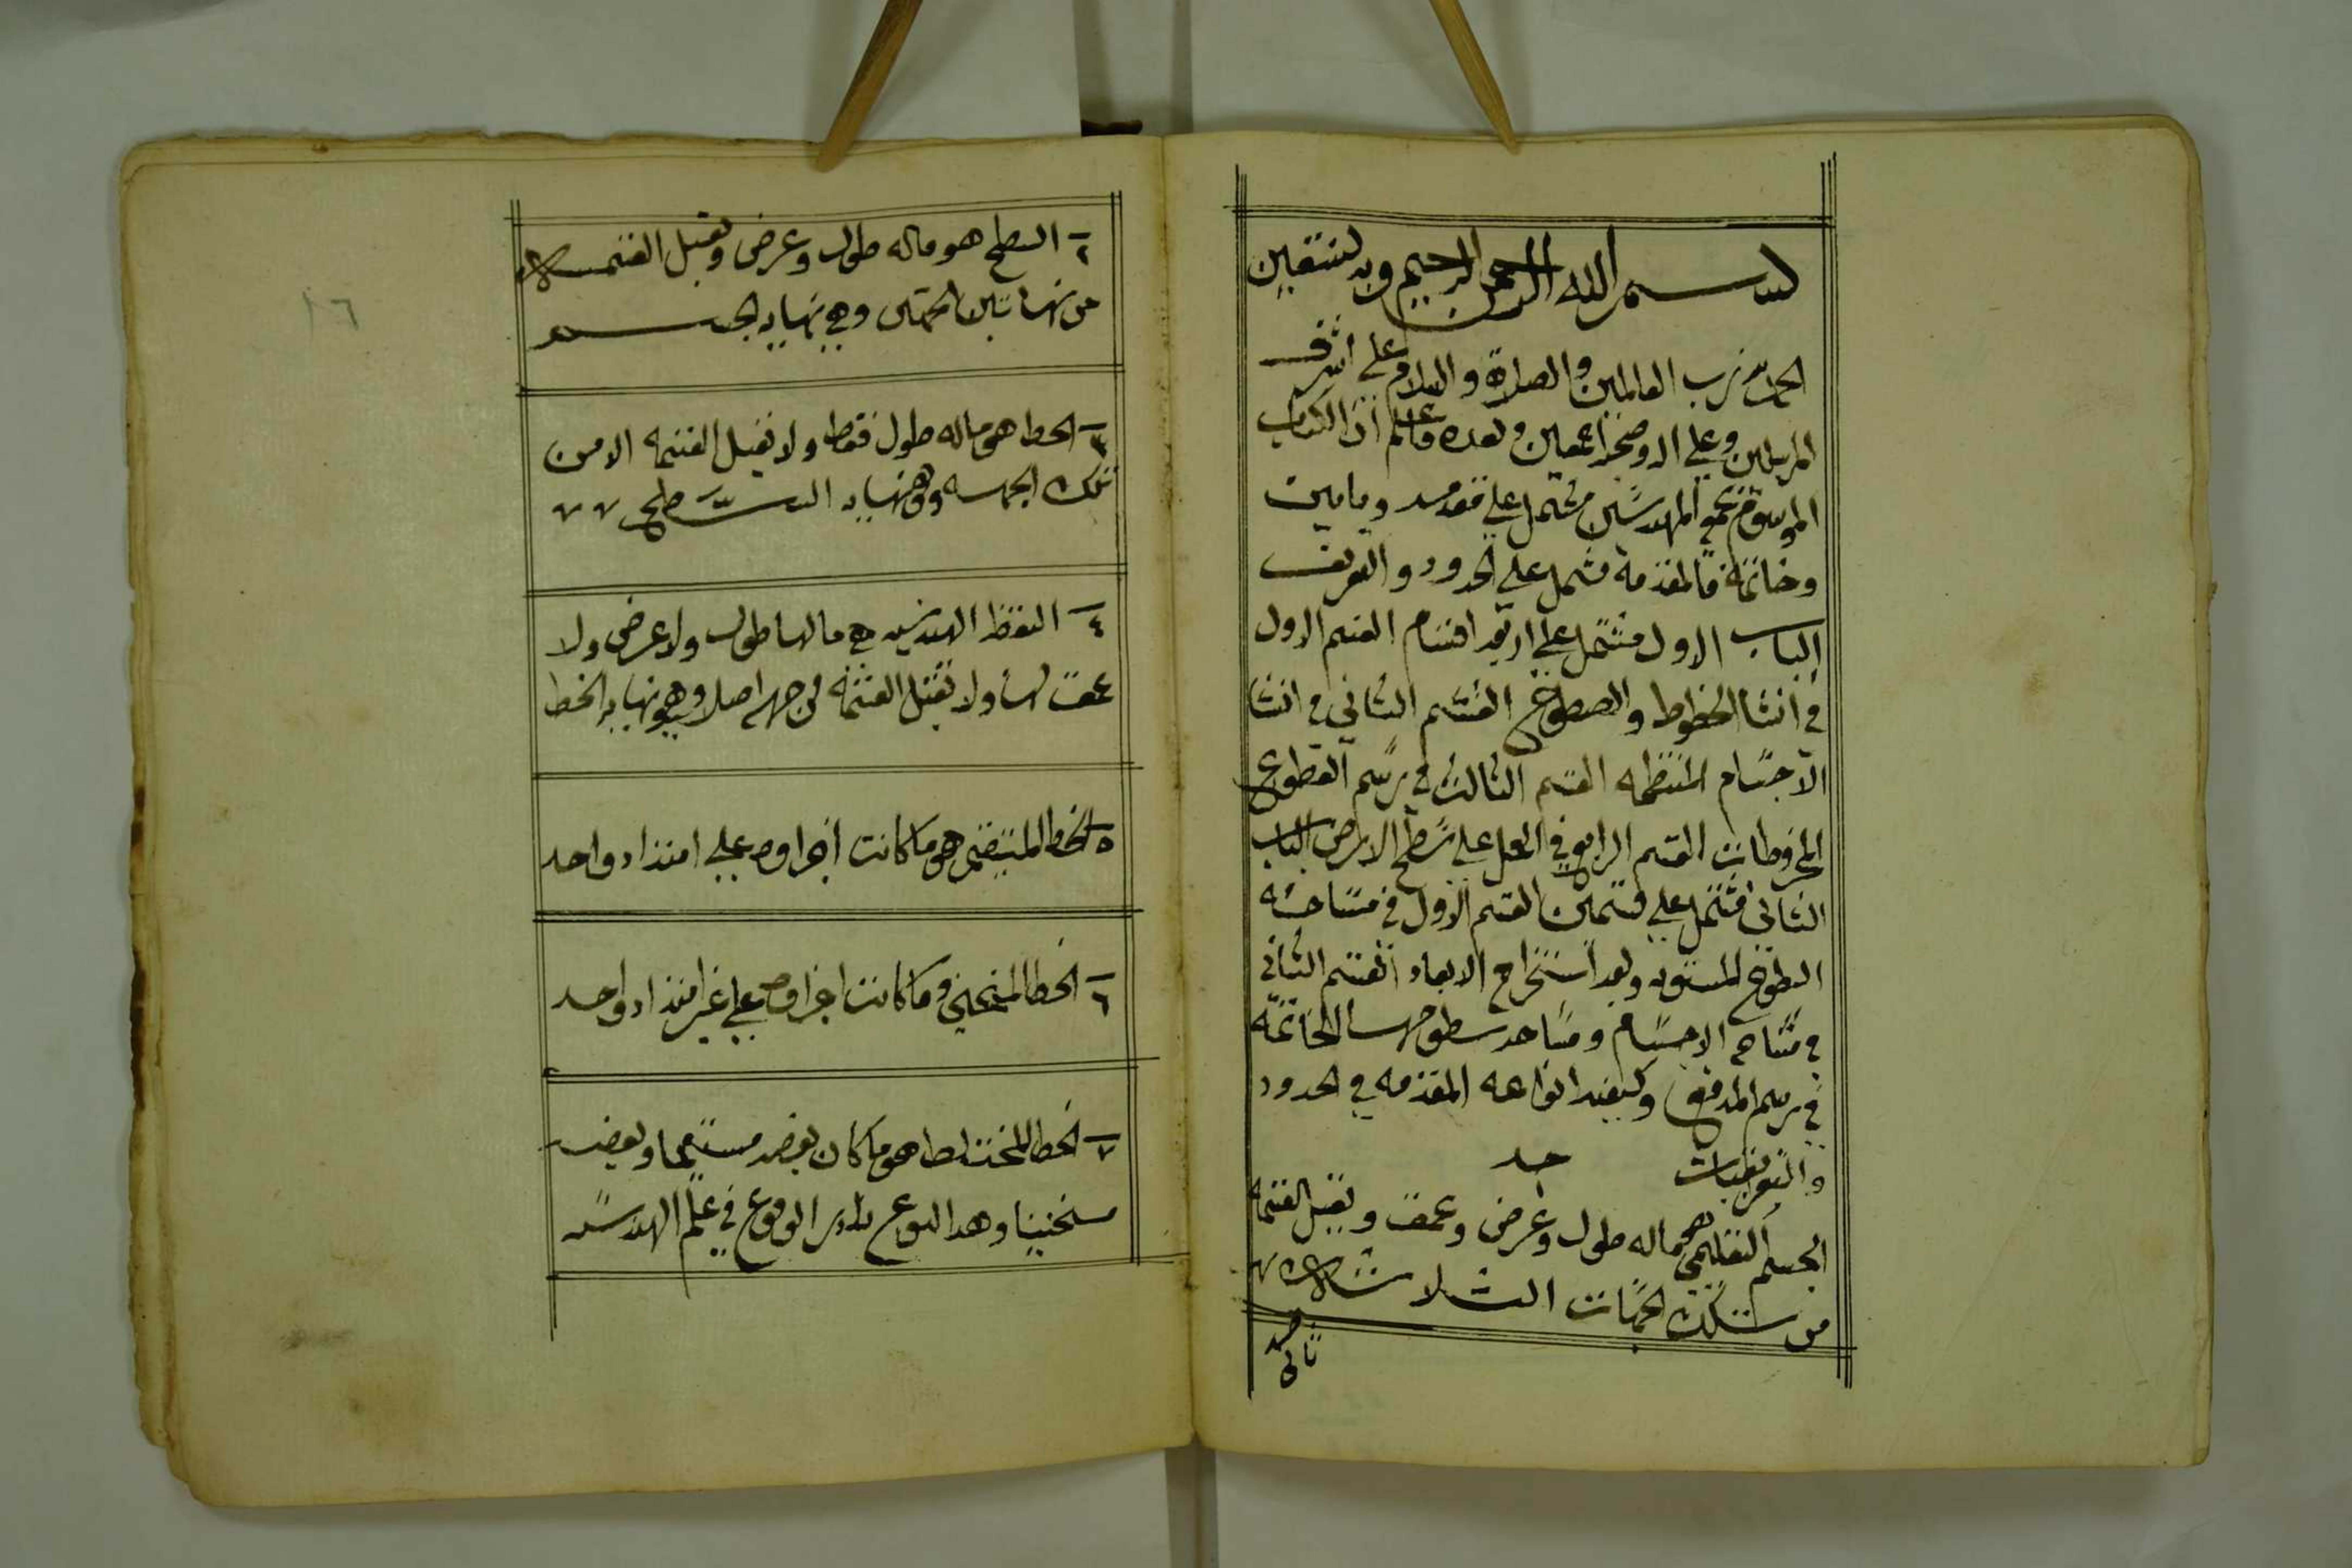 بسم الله الرحمن الرحيم وبه نستعين
الحمد لله رب العالمين والصلاة والسلام على اشرف
المرسلين وعلى اله وصحبه اجمعين وبعده فاعلم ان الكتاب
الموسوم المهندسين مشتمل على مقدمه وبابين
وخاتمة فالمقدمة مشتمل على الحدود والتعريف
الباب الاول مشتمل على اربعه اقسام القسم الاول
في انشا الخطوط والصطوح القسم الثاني في انشا
الاجسام المنتظمه القسم الثالث في رسم القطوع
المخروطات القسم الرابع في العمل على سطح الارض الباب
الثاني مشتمل على قسمين القسم الاول في مساحته
السطوح المستويه وبعد استخراج الابعاد القسم الثاني
في مساحه الاجسام ومساحه سطوحها الخاتمة
في رسم المدفع وكيفيه انواعه المقدمه في الحدود
والتعريفات حد
الجسم التعليمي هو ماله طول وعرض وعمق ويقبل القسمة
من تلك الجهات الثلاثة
حد
ثاني
١٦
٢ السطح هو ماله طول وعرض ويقبل القسمة
من تلك الجهتين وهي نهايه الجسم
٣ الخط هو ماله طول فقط ولا يقبل القسمه الا من
تلك الجهه وهو نهايه السطح
٤ النقطه الهندسيه هي مالها طول ولا عرض ولا
عمق لها ولا يقبل القسمة من جهه اصلا وهي نهايه الخط
٥ الخط المستقيم هو ما كانت اجزاوه على امتداد واحد
٦ الخط المنحني هو ما كانت اجزاوه على غير امتداد واحد
٧ الخط المختلط هو ما كان بعضه مستقيما وبعضه
منحنيا وهدا النوع نادر الوقوع في علم الهندسه